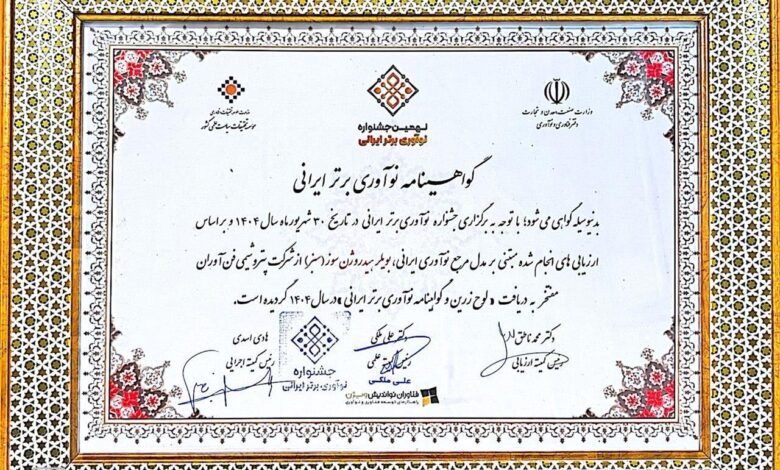 وزارت صنعت، معدن و تجارت
دفتر فناوری و نوآوری
نهمین جشنواره
نوآوری برتر ایرانی
وزارت علوم، تحقیقات و فناوری
موسسه تحقیقات سیاست علمی کشور
گواهینامه نوآوری برتر ایرانی
بدینوسیله گواهی می‌شود؛ با توجه به برگزاری جشنواره نوآوری برتر ایرانی در تاریخ ۳۰ شهریور ماه سال ۱۴۰۴ و بر اساس
ارزیابی های انجام شده مبتنی بر مدل مرجع نوآوری ایرانی، بویلر هیدروژن سوز (سبز) از شرکت پتروشیمی فن آوران
مفتخر به دریافت « لوح زرین و گواهینامه نوآوری برتر ایرانی » در سال ۱۴۰۴ گردیده است.
دکتر محمد ناطق
رئیس کمیته ارزیابی
دکتر علی ملکی
رئیس کمیته علمی
علی ملکی
جشنواره
نوآوری برتر ایرانی
هادی اسدی
رئیس کمیته اجرایی
فناوران نواندیش ویـژن
راهکارهای توسعه فناوری و نوآوری